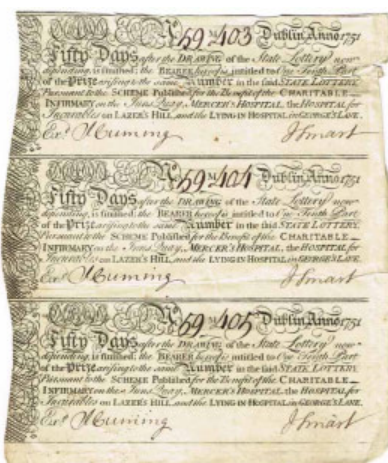 No. 59 M 403 Dublin Anno 1751
Fifty Days after the DRAWING of the State Lottery now
depending, is finished; the BEARER hereof is intitled to One Tenth Part
of the Prize arising to the same Number in the said STATE LOTTERY,
Pursuant to the SCHEME Published for the Benefit of the CHARITABLE
INFIRMARY on the Inns Quay, MERCER'S HOSPITAL, the HOSPITAL for
Incurables on LAZER'S HILL, and the LYING IN HOSPITAL in GEORGE'S LANE.
Exd. J Smart
No. 59 M 404 Dublin Anno 1751
Fifty Days after the DRAWING of the State Lottery now
depending, is finished; the BEARER hereof is intitled to One Tenth Part
of the Prize arising to the same Number in the said STATE LOTTERY,
Pursuant to the SCHEME Published for the Benefit of the CHARITABLE
INFIRMARY on the Inns Quay, MERCER'S HOSPITAL, the HOSPITAL for
Incurables on LAZER'S HILL, and the LYING IN HOSPITAL in GEORGE'S LANE.
Exd. J Smart
No. 59 M 405 Dublin Anno 1751
Fifty Days after the DRAWING of the State Lottery now
depending, is finished; the BEARER hereof is intitled to One Tenth Part
of the Prize arising to the same Number in the said STATE LOTTERY,
Pursuant to the SCHEME Published for the Benefit of the CHARITABLE
INFIRMARY on the Inns Quay, MERCER'S HOSPITAL, the HOSPITAL for
Incurables on LAZER'S HILL, and the LYING IN HOSPITAL in GEORGE'S LANE.
Exd. J Smart